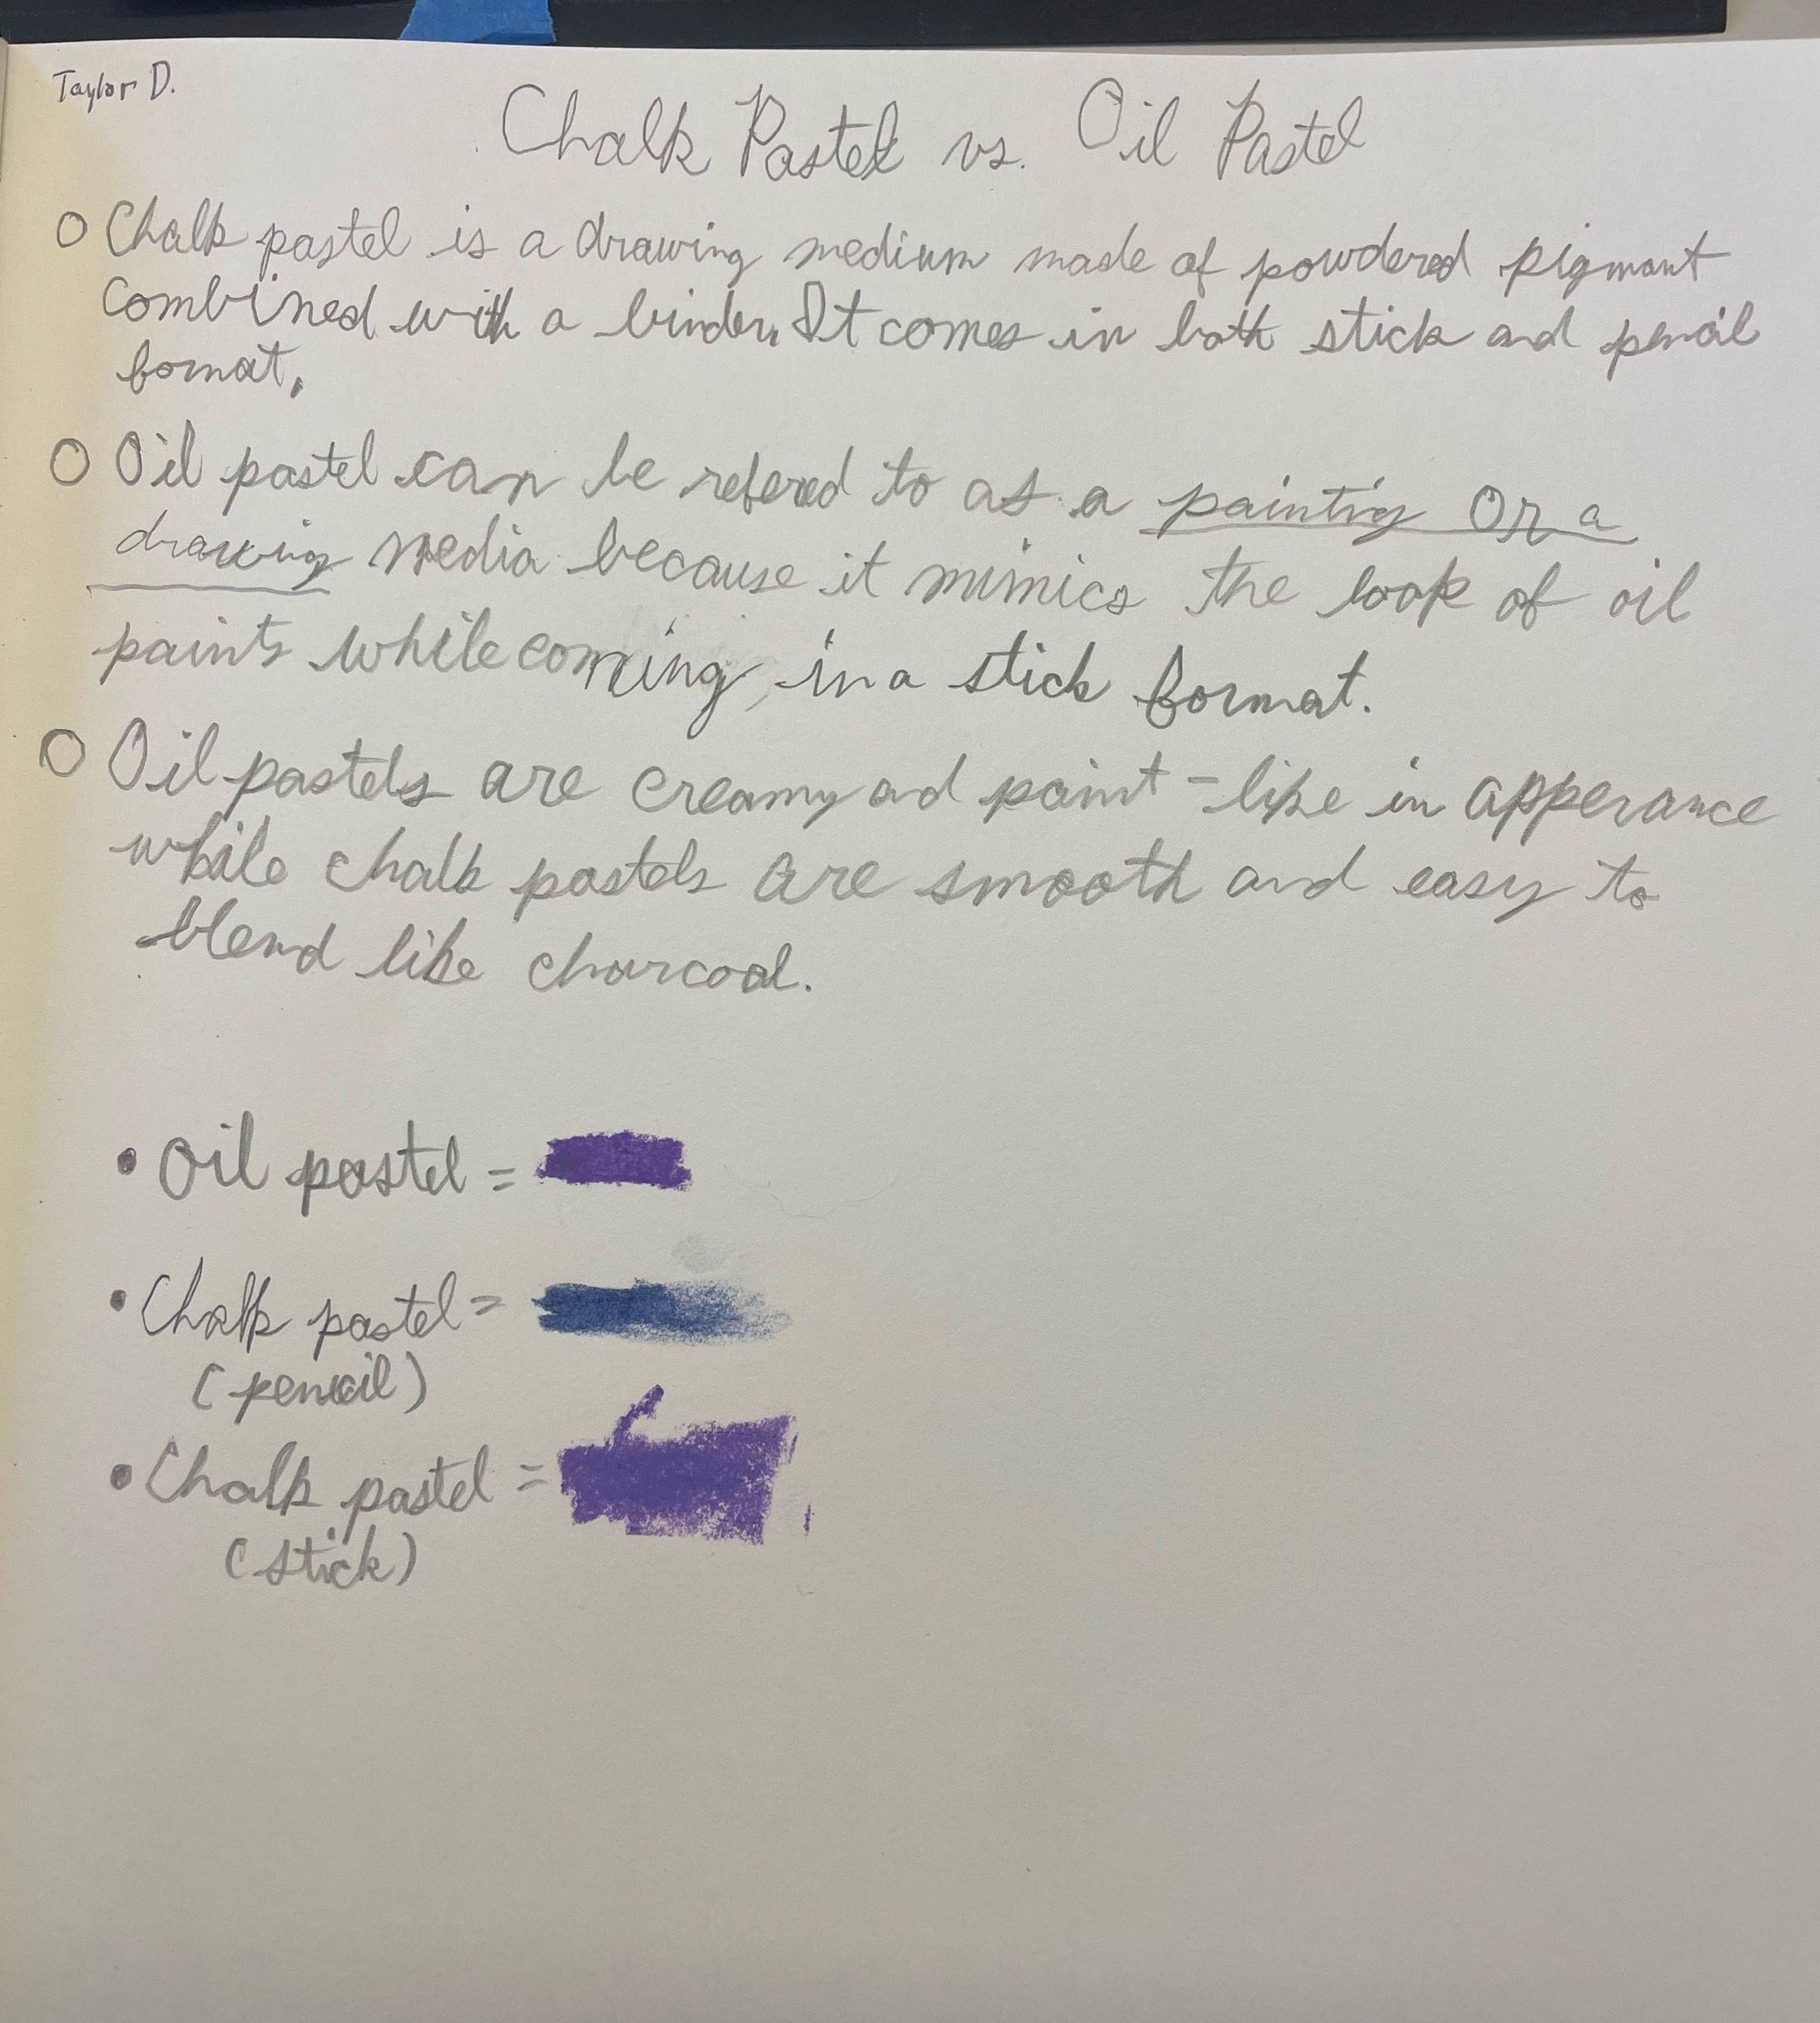 Taylor D.
Chalk Pastel vs. Oil Pastel
O Chalk pastel is a drawing medium made of powdered pigmant
combined with a binder. It comes in both stick and pencil
format.
O Oil pastel can be refered to as a painting or a
drawing media because it mimics the look of oil
paints while comming in a stick format.
O Oil pastels are creamy ad paint-like in apperance
while chalk pastels are smooth and easy to
blend like charcoal.
• Oil pastel =
• Chalk pastel =
(pencil)
• Chalk pastel =
(stick)